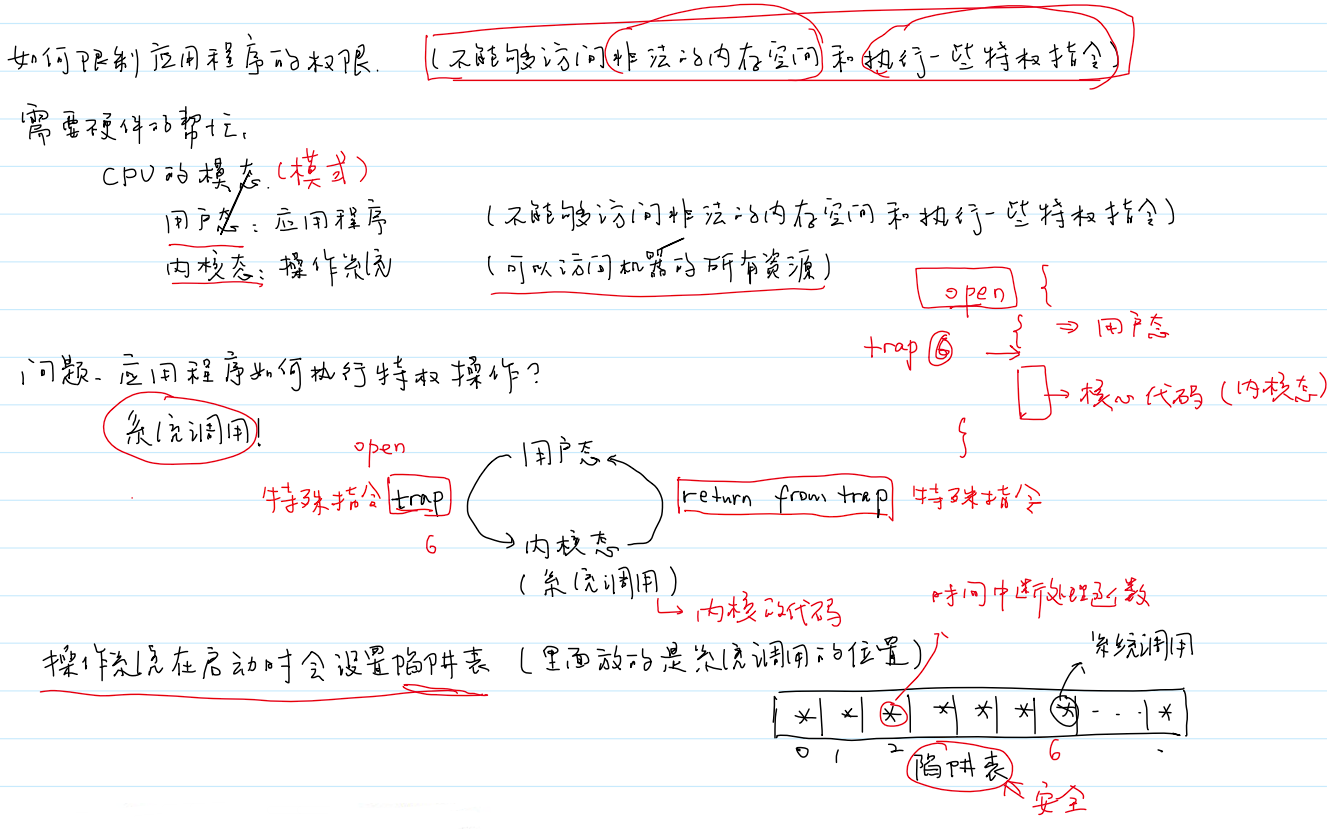 如何限制应用程序的权限. (不能够访问非法的内存空间和执行一些特权指令)
需要硬件的帮忙.
CPU的模态.(模式)
用户态: 应用程序 (不能够访问非法的内存空间和执行一些特权指令)
内核态: 操作系统 (可以访问机器的所有资源)
open {
{ ⇒ 用户态
trap 6 →
→ 核心代码 (内核态)
}
问题. 应用程序如何执行特权操作?
系统调用!
open
用户态
特殊指令 trap
return from trap 特殊指令
6
内核态
(系统调用)
内核的代码
时间中断处理函数
系统调用
操作系统在启动时会设置陷阱表 (里面放的是系统调用的位置)
* | * | * | * | * | * | * | - . . | *
0 1 2 6 .
陷阱表
安全